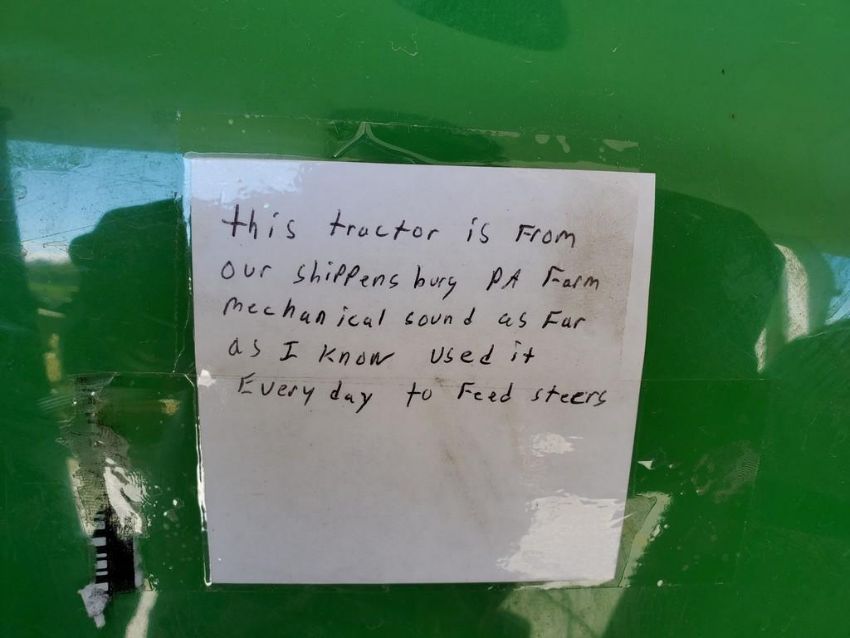 this tractor is From
our shippensburg PA Farm
mechanical sound as Far
as I know used it
Every day to Feed steers